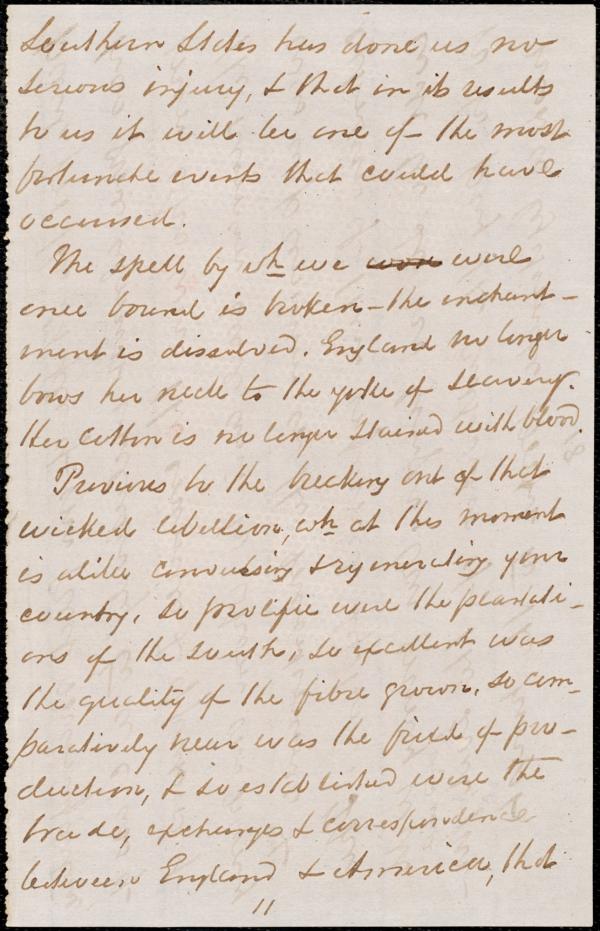 Southern States has done us no
serious injury, & that in its results
to us it will be one of the most
fortunate events that could have
occurred.
The spell by wh we were were
once bound is broken – the enchant-
ment is dissolved. England no longer
bows her neck to the yoke of slavery.
Her cotton is no longer stained with blood.
Previous to the breaking out of that
wicked rebellion, wh at this moment
is alike convulsing & regenerating your
country, so prolific were the plantati-
ons of the South, so excellent was
the quality of the fibre grown, so com-
paratively near was the field of pro-
duction, & so established were the
trade, exchanges & correspondence
between England & America, that
11